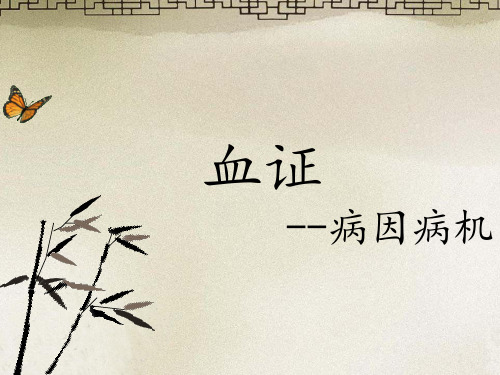 血证
--病因病机